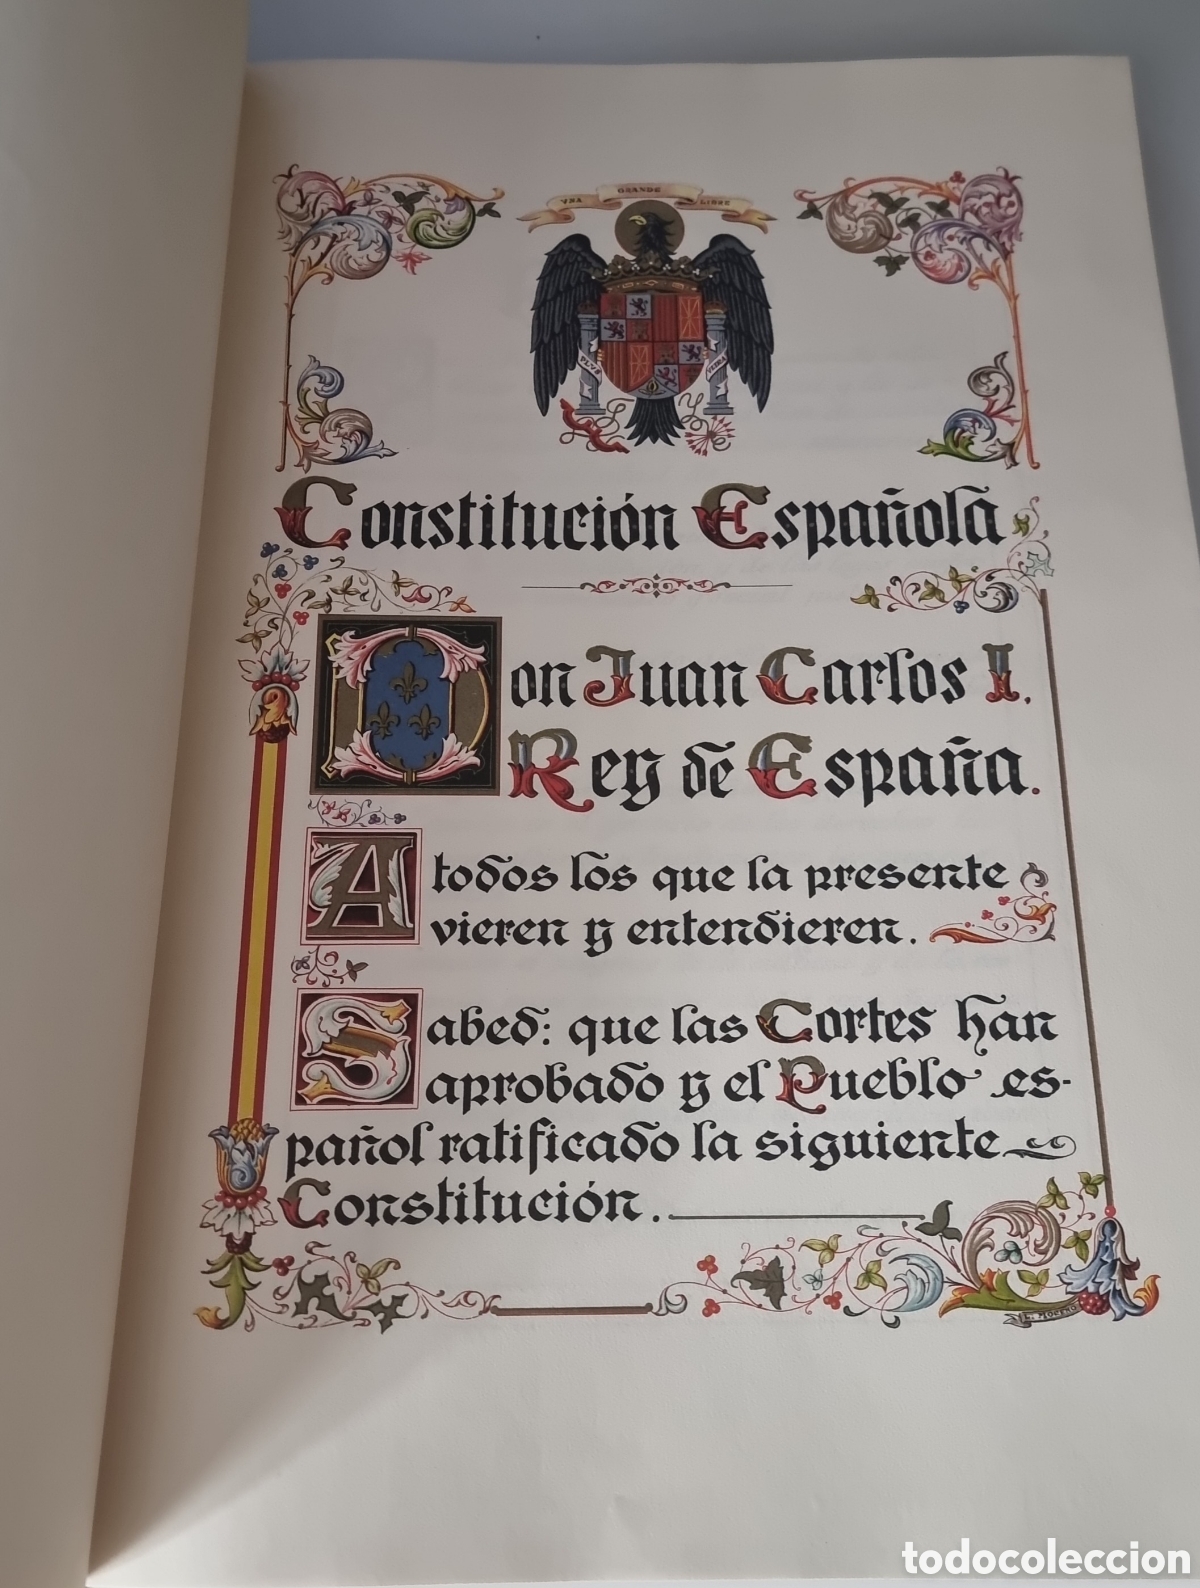 VNA GRANDE LIBRE
PLVS VLTRA
Constitución Española
Don Juan Carlos I.
Rey de España.
A todos los que la presente
vieren y entendieren.
Sabed: que las Cortes han
aprobado y el Pueblo es-
pañol ratificado la siguiente
Constitución.
L. MORENO
todocoleccion